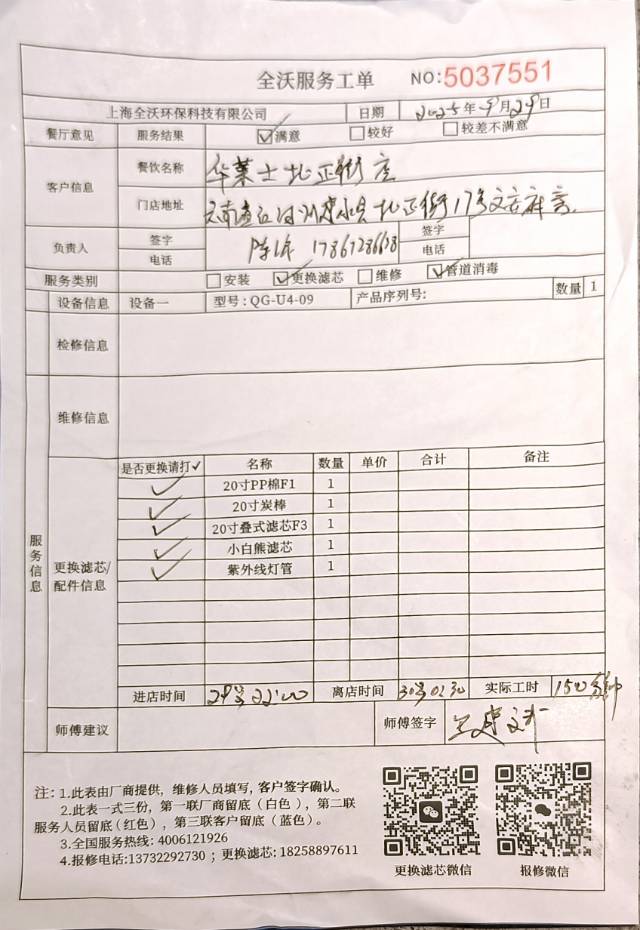 全沃服务工单 NO:5037551
上海全沃环保科技有限公司 日期 2025年9月29日
餐厅意见 服务结果 ☑满意 □较好 □较差不满意
客户信息 餐饮名称 华莱士北正街店
门店地址 云南省红河州建水县北正街17号
负责人 签字 签字
电话 电话
服务类别 □安装 ☑更换滤芯 □维修 ☑管道消毒
设备信息 设备一 型号:QG-U4-09 产品序列号: 数量 1
检修信息
维修信息
服务信息
更换滤芯/配件信息
是否更换请打✓ 名称 数量 单价 合计 备注
✓ 20寸PP棉F1 1
✓ 20寸炭棒 1
✓ 20寸叠式滤芯F3 1
✓ 小白熊滤芯 1
✓ 紫外线灯管 1
进店时间 29号22:00 离店时间 30号01:30 实际工时 150分钟
师傅建议 师傅签字
注:1.此表由厂商提供,维修人员填写,客户签字确认。
2.此表一式三份,第一联厂商留底(白色),第二联
服务人员留底(红色),第三联客户留底(蓝色)。
3.全国服务热线:4006121926
4.报修电话:13732292730;更换滤芯:18258897611
更换滤芯微信 报修微信